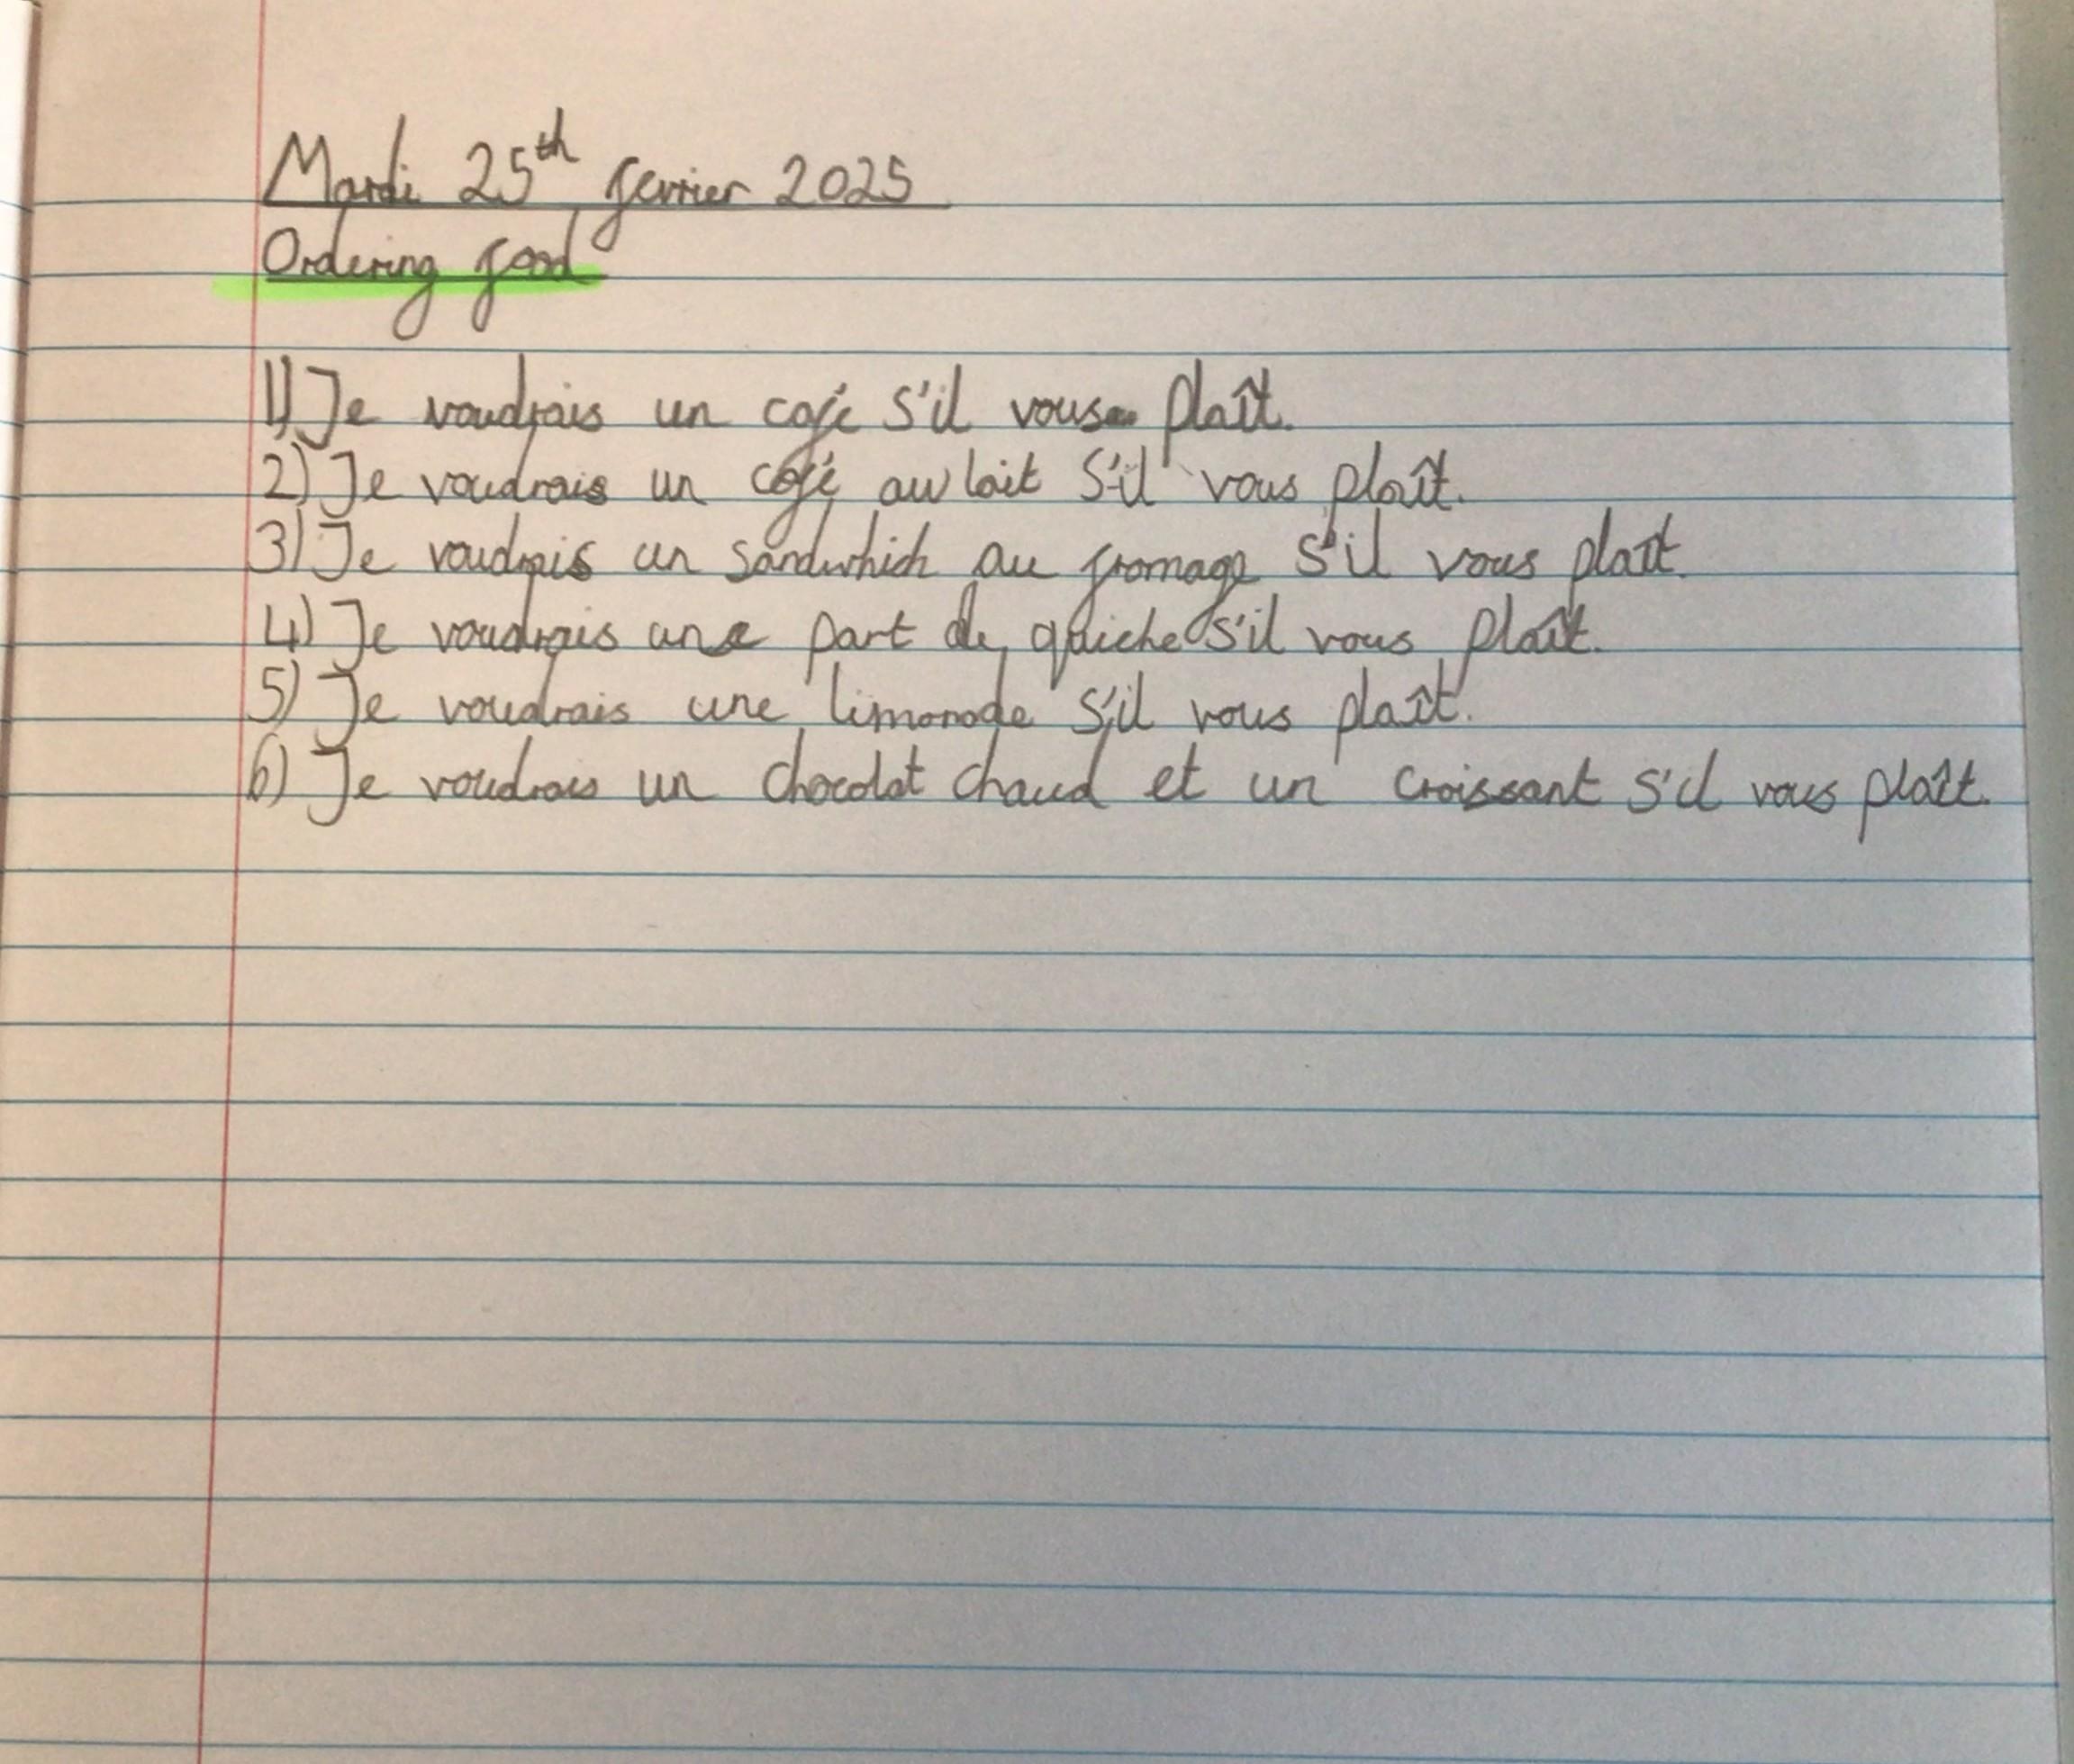 Mardi 25th fevrier 2025
Ordering food
1) Je voudrais un café s'il vous plaît.
2) Je voudrais un café au lait s'il vous plaît.
3) Je voudrais un sandwhich au fromage s'il vous plaît.
4) Je voudrais une part de quiche s'il vous plaît.
5) Je voudrais une limonade s'il vous plaît.
6) Je voudrais un chocolat chaud et un croissant s'il vous plaît.